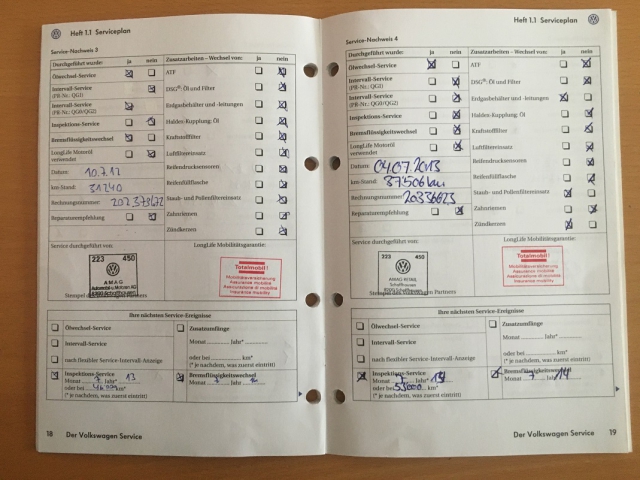 Heft 1.1 Serviceplan
Service-Nachweis 3
Durchgeführt wurde: ja nein
Zusatzarbeiten – Wechsel von: ja nein
Ölwechsel-Service
ATF
Intervall-Service
(PR-Nr.: QG1)
DSG®: Öl und Filter
Intervall-Service
(PR-Nr.: QG0/QG2)
Erdgasbehälter und -leitungen
Inspektions-Service
Haldex-Kupplung: Öl
Bremsflüssigkeitswechsel
Kraftstofffilter
LongLife Motoröl
verwendet
Luftfiltereinsatz
Datum: 10.7.12
Reifendrucksensoren
km-Stand: 31240
Reifenfüllflasche
Rechnungsnummer: 202379672
Staub- und Pollenfiltereinsatz
Reparaturempfehlung
Zahnriemen
Zündkerzen
Service durchgeführt von:
LongLife Mobilitätsgarantie:
223 450
AMAG
Automobil- u. Motoren AG
Stempel des Volkswagen Partners
Totalmobil!
Mobilitätsversicherung
Assurance mobilité
Assicurazione di mobilità
Insurance mobility
Ihre nächsten Service-Ereignisse
Ölwechsel-Service
Zusatzumfänge
Monat Jahr*
Intervall-Service
oder bei km*
(* je nachdem, was zuerst eintritt)
nach flexibler Service-Intervall-Anzeige
Inspektions-Service
Monat 7 Jahr* 13
oder bei km*
(* je nachdem, was zuerst eintritt)
Bremsflüssigkeitswechsel
Monat Jahr
18 Der Volkswagen Service
Heft 1.1 Serviceplan
Service-Nachweis 4
Durchgeführt wurde: ja nein
Zusatzarbeiten – Wechsel von: ja nein
Ölwechsel-Service
ATF
Intervall-Service
(PR-Nr.: QG1)
DSG®: Öl und Filter
Intervall-Service
(PR-Nr.: QG0/QG2)
Erdgasbehälter und -leitungen
Inspektions-Service
Haldex-Kupplung: Öl
Bremsflüssigkeitswechsel
Kraftstofffilter
LongLife Motoröl
verwendet
Luftfiltereinsatz
Datum: 04.07.2013
Reifendrucksensoren
km-Stand: 37'506 km
Reifenfüllflasche
Rechnungsnummer: 20336623
Staub- und Pollenfiltereinsatz
Reparaturempfehlung
Zahnriemen
Zündkerzen
Service durchgeführt von:
LongLife Mobilitätsgarantie:
223 450
AMAG RETAIL
Schaffhausen
Stempel des Volkswagen Partners
Totalmobil!
Mobilitätsversicherung
Assurance mobilité
Assicurazione di mobilità
Insurance mobility
Ihre nächsten Service-Ereignisse
Ölwechsel-Service
Zusatzumfänge
Monat Jahr*
Intervall-Service
oder bei km*
(* je nachdem, was zuerst eintritt)
nach flexibler Service-Intervall-Anzeige
Inspektions-Service
Monat 7 Jahr*
oder bei km*
(* je nachdem, was zuerst eintritt)
Bremsflüssigkeitswechsel
Monat 7 Jahr 14
Der Volkswagen Service 19